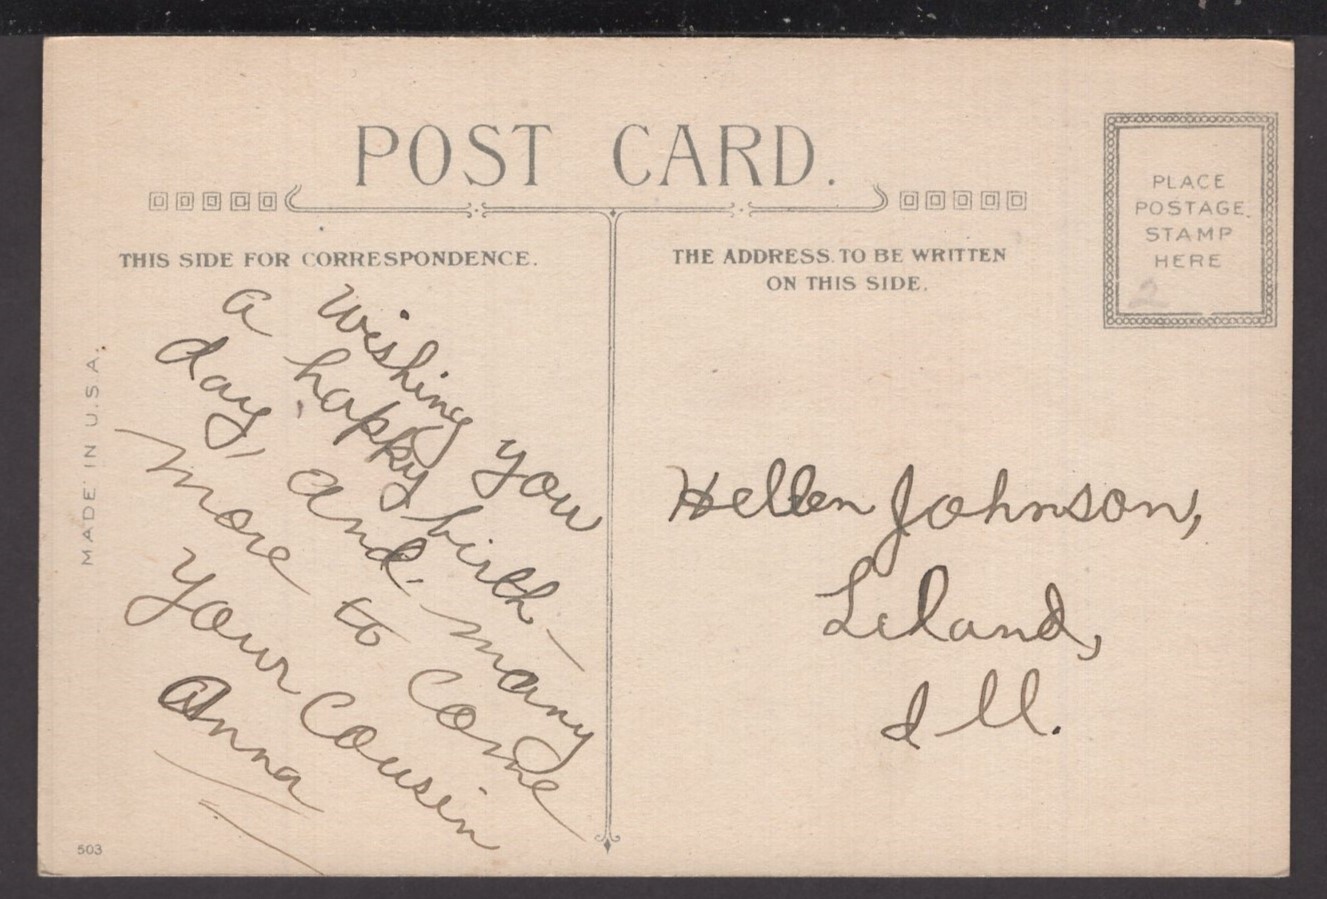 POST CARD.
THIS SIDE FOR CORRESPONDENCE.
Wishing you
a happy birth-
day, and many
more to come
Your Cousin
Anna
THE ADDRESS TO BE WRITTEN
ON THIS SIDE.
PLACE
POSTAGE
STAMP
HERE
2
Hellen Johnson,
Leland,
Ill.
MADE IN U.S.A.
503